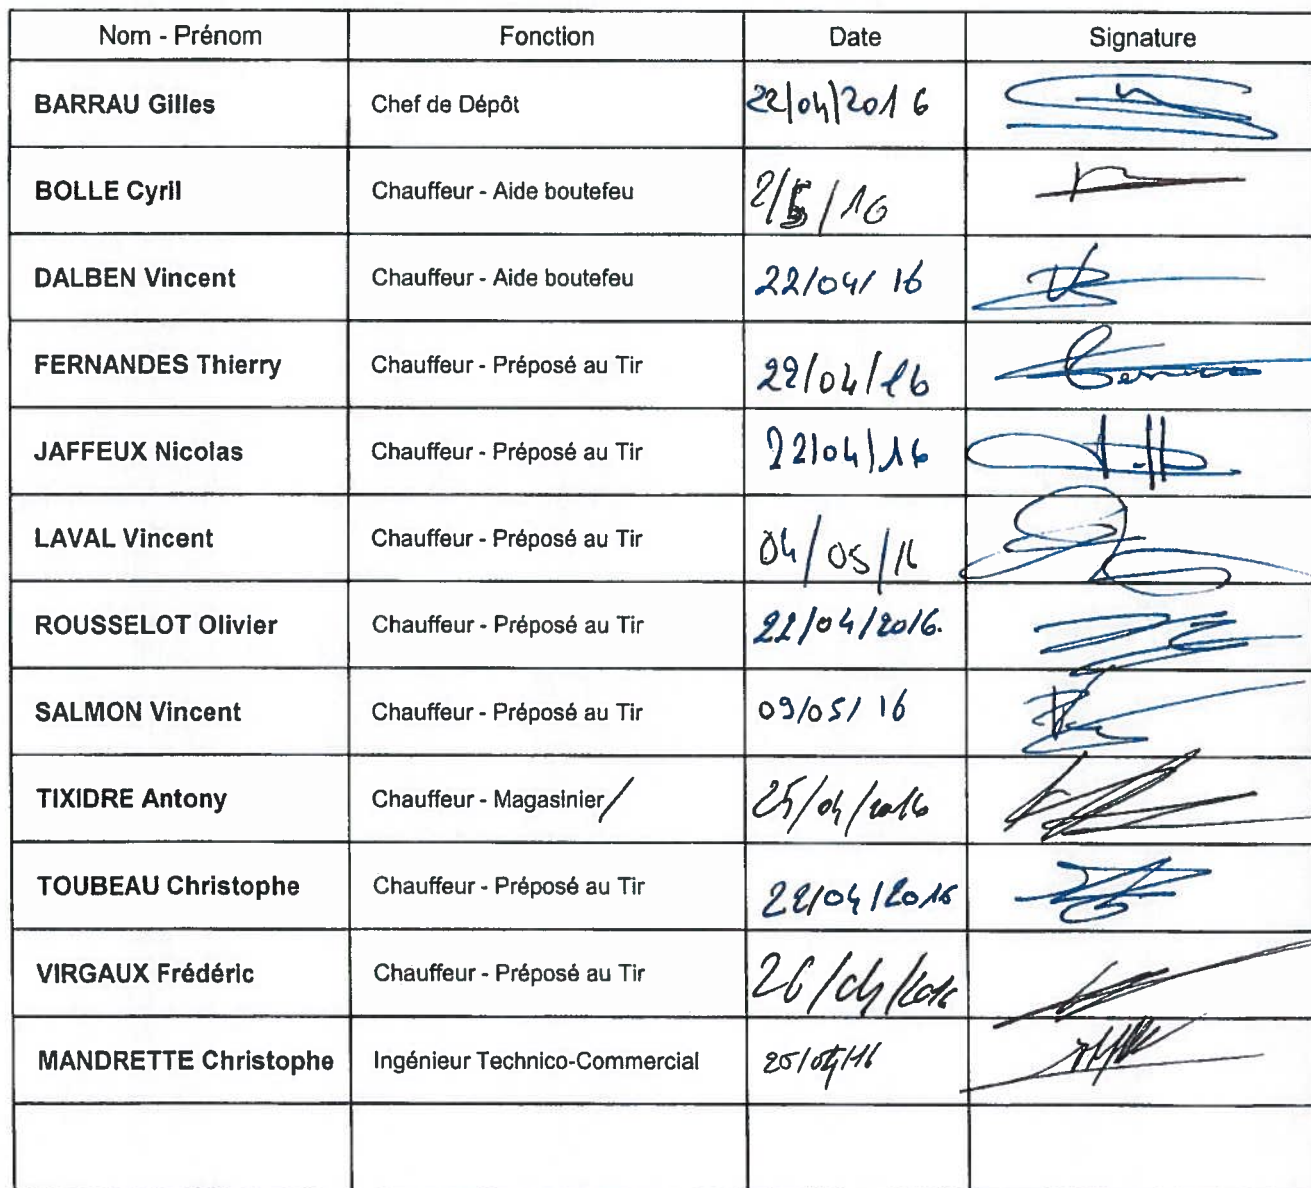 Nom - Prénom Fonction Date Signature
BARRAU Gilles Chef de Dépôt 22/04/2016
BOLLE Cyril Chauffeur - Aide boutefeu 2/5/16
DALBEN Vincent Chauffeur - Aide boutefeu 22/04/16
FERNANDES Thierry Chauffeur - Préposé au Tir 22/04/16
JAFFEUX Nicolas Chauffeur - Préposé au Tir 22/04/16
LAVAL Vincent Chauffeur - Préposé au Tir 04/05/16
ROUSSELOT Olivier Chauffeur - Préposé au Tir 22/04/2016.
SALMON Vincent Chauffeur - Préposé au Tir 09/05/16
TIXIDRE Antony Chauffeur - Magasinier/ 25/04/2016
TOUBEAU Christophe Chauffeur - Préposé au Tir 22/04/2016
VIRGAUX Frédéric Chauffeur - Préposé au Tir 26/04/2016
MANDRETTE Christophe Ingénieur Technico-Commercial